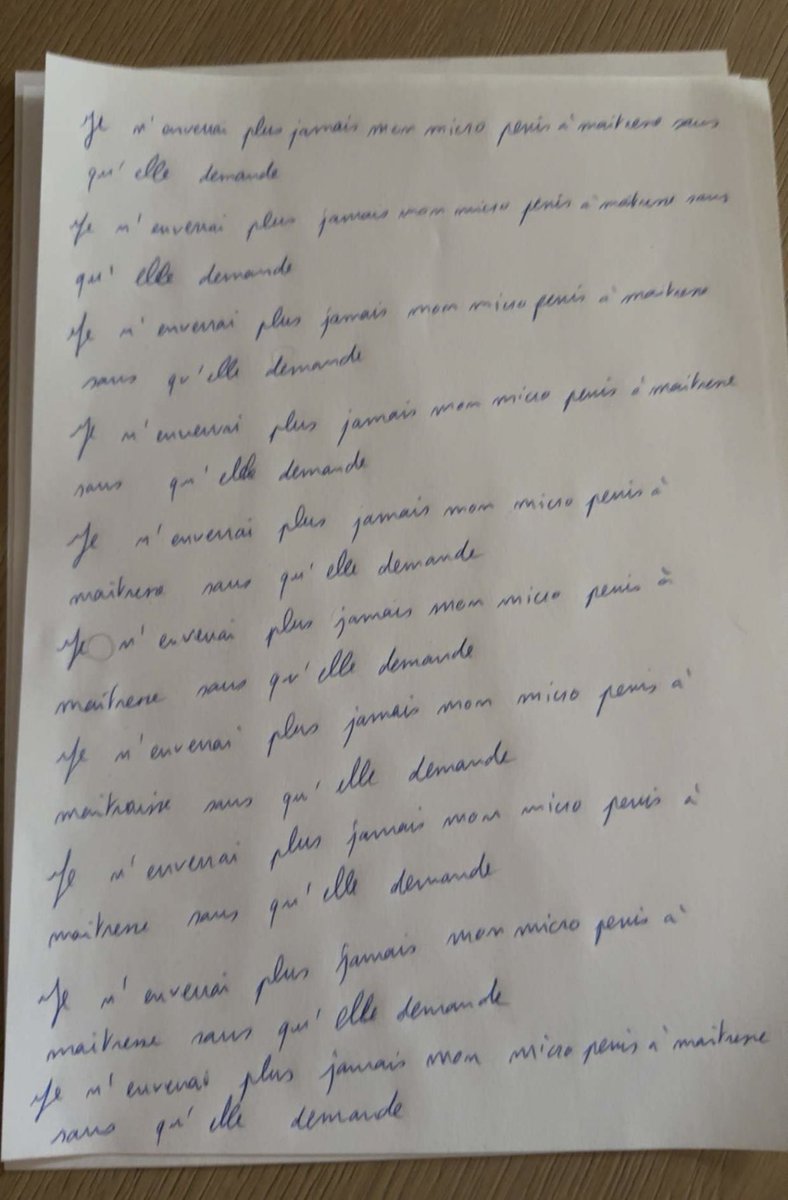 Je n'enverrai plus jamais mon micro penis à maitresse sans
qu'elle demande
Je n'enverrai plus jamais mon micro penis à maitresse sans
qu'elle demande
Je n'enverrai plus jamais mon micro penis à maitresse
sans qu'elle demande
Je n'enverrai plus jamais mon micro penis à maitresse
sans qu'elle demande
Je n'enverrai plus jamais mon micro penis à
maitresse sans qu'elle demande
Je n'enverrai plus jamais mon micro penis à
maitresse sans qu'elle demande
Je n'enverrai plus jamais mon micro penis à
maitraisse sans qu'elle demande
Je n'enverrai plus jamais mon micro penis à
maitresse sans qu'elle demande
Je n'enverrai plus jamais mon micro penis à
maitresse sans qu'elle demande
Je n'enverrai plus jamais mon micro penis à maitresse
sans qu'elle demande